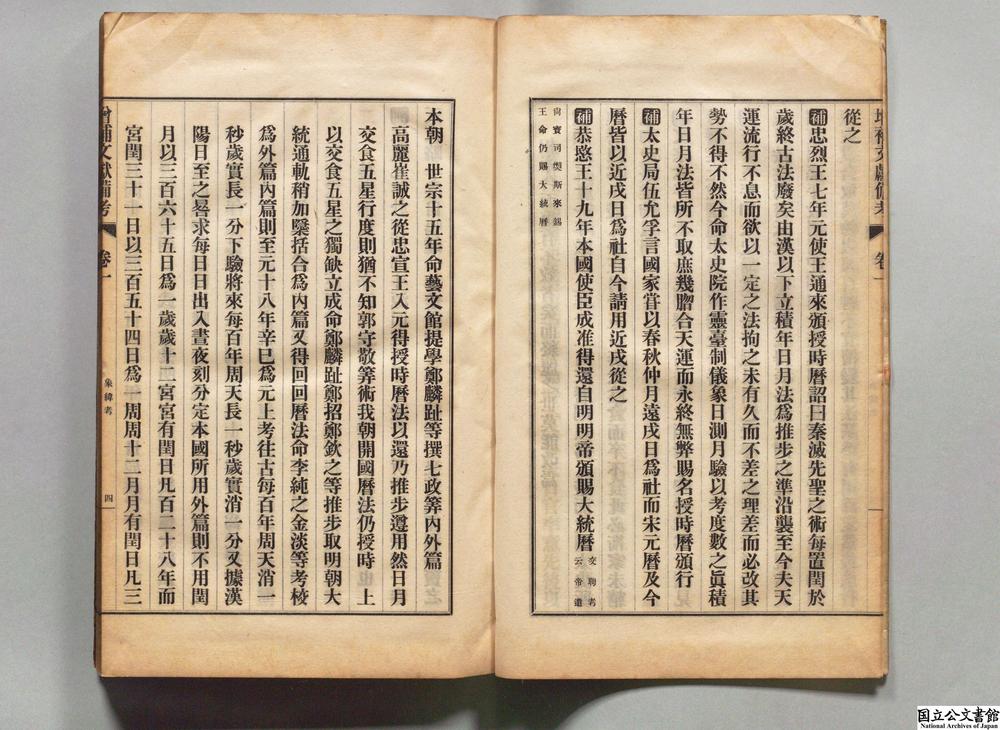 從之
補忠烈王七年元使王通來頒授時曆詔曰秦滅先聖之術每置閏於
歲終古法廢矣由漢以下立積年日月法爲推步之準沿襲至今夫天
運流行不息而欲以一定之法拘之未有久而不差之理差而必改其
勢不得不然今命太史院作靈臺制儀象日測月驗以考度數之眞積
年日月法皆所不取庶幾脗合天運而永終無弊賜名授時曆頒行
補太史局伍允孚言國家甞以春秋仲月遠戌日爲社而宋元曆及今
曆皆以近戌日爲社自今請用近戌從之
補恭愍王十九年本國使臣成准得還自明明帝頒賜大統曆交聘考云帝遣
尙寶司偰斯來錫王命仍賜大統曆
本朝 世宗十五年命藝文館提學鄭麟趾等撰七政筭內外篇
高麗崔誠之從忠宣王入元得授時曆法以還乃推步遵用然日月
交食五星行度則猶不知郭守敬筭術我朝開國曆法仍授時
以交食五星之獨缺立成命鄭麟趾鄭招鄭欽之等推步取明朝大
統通軌稍加櫽括合爲內篇又得回回曆法命李純之金淡等考校
爲外篇內篇則至元十八年辛巳爲元上考往古每百年周天消一
秒歲實長一分下驗將來每百年周天長一秒歲實消一分又據漢
陽日至之晷求每日日出入晝夜刻分定本國所用外篇則不用閏
月以三百六十五日爲一歲歲十二宮宮有閏日凡百二十八年而
宮閏三十一日以三百五十四日爲一周周十二月月有閏日凡三
增補文獻備考 卷一
象緯考
四